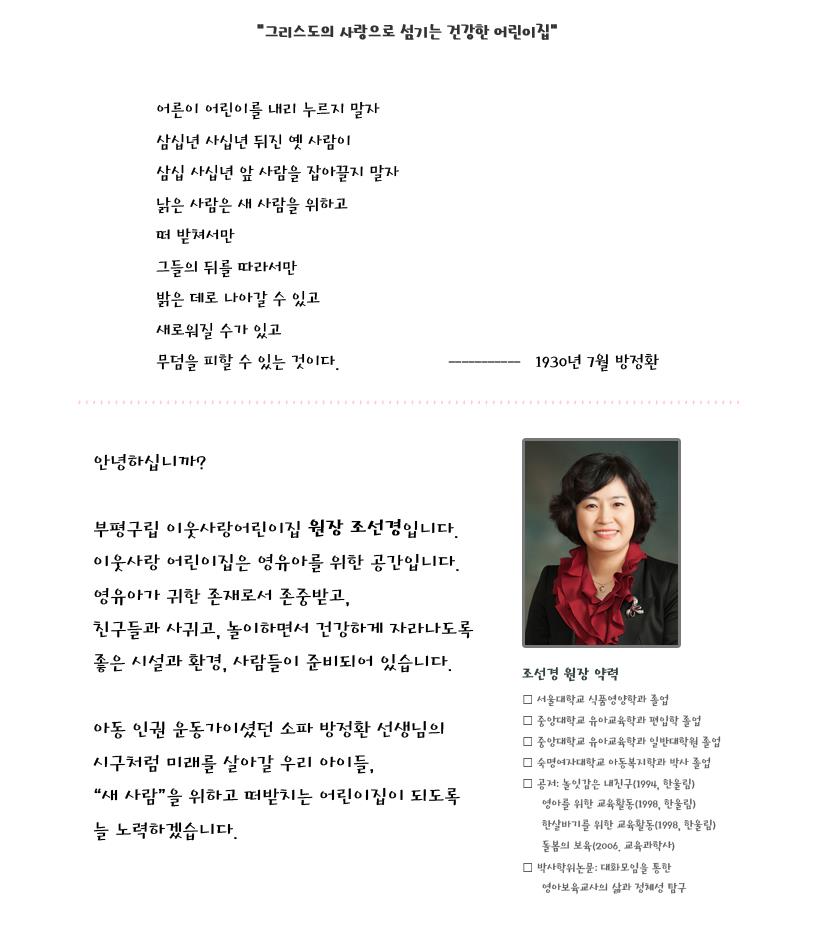 "그리스도의 사랑으로 섬기는 건강한 어린이집"
어른이 어린이를 내리 누르지 말자
삼십년 사십년 뒤진 옛 사람이
삼십 사십년 앞 사람을 잡아끌지 말자
낡은 사람은 새 사람을 위하고
떠 받쳐서만
그들의 뒤를 따라서만
밝은 데로 나아갈 수 있고
새로워질 수가 있고
무덤을 피할 수 있는 것이다.
----------- 1930년 7월 방정환
안녕하십니까?
부평구립 이웃사랑어린이집 원장 조선경입니다.
이웃사랑 어린이집은 영유아를 위한 공간입니다.
영유아가 귀한 존재로서 존중받고,
친구들과 사귀고, 놀이하면서 건강하게 자라나도록
좋은 시설과 환경, 사람들이 준비되어 있습니다.
아동 인권 운동가이셨던 소파 방정환 선생님의
시구처럼 미래를 살아갈 우리 아이들,
“새 사람”을 위하고 떠받치는 어린이집이 되도록
늘 노력하겠습니다.
조선경 원장 약력
□ 서울대학교 식품영양학과 졸업
□ 중앙대학교 유아교육학과 편입학 졸업
□ 중앙대학교 유아교육학과 일반대학원 졸업
□ 숙명여자대학교 아동복지학과 박사 졸업
□ 공저: 놀잇감은 내친구(1994, 한울림)
영아를 위한 교육활동(1998, 한울림)
한살바기를 위한 교육활동(1998, 한울림)
돌봄의 보육(2006, 교육과학사)
□ 박사학위논문: 대화모임을 통한
영아보육교사의 삶과 정체성 탐구